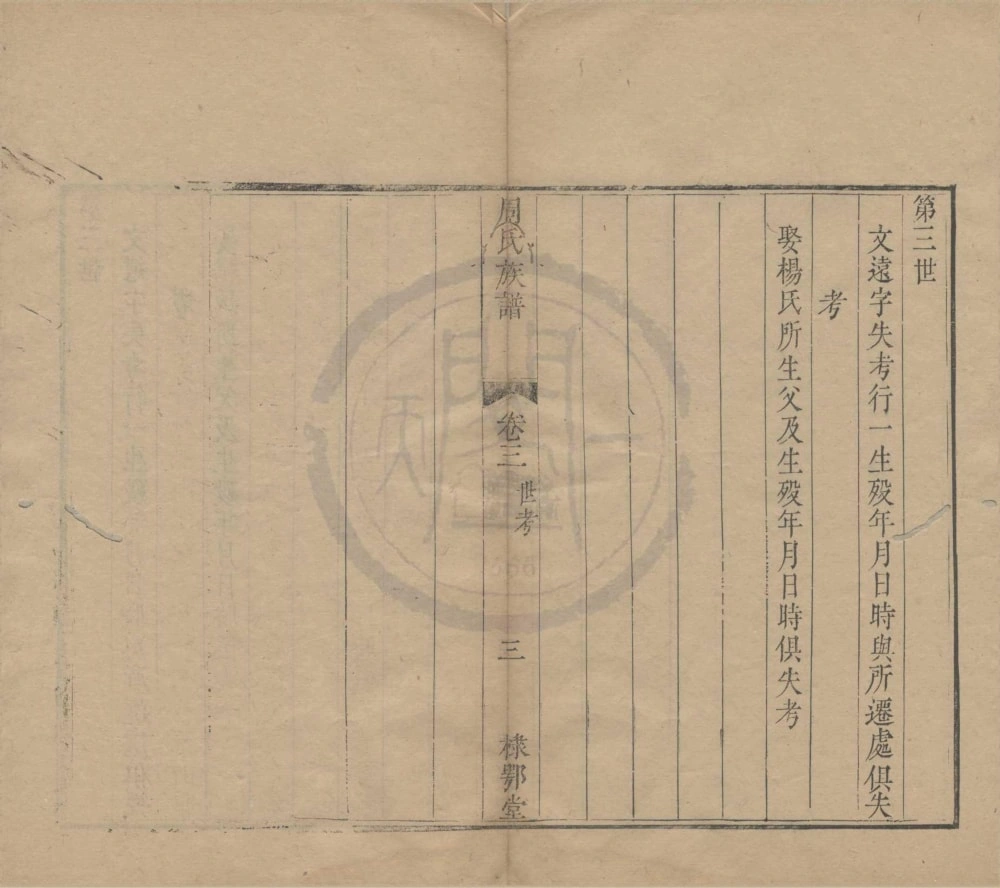 第三世
文遠字失考行一生殁年月日時與所遷處俱失
考
娶楊氏所生父及生殁年月日時俱失考
周氏族譜
卷三
世考
三
棣鄂堂